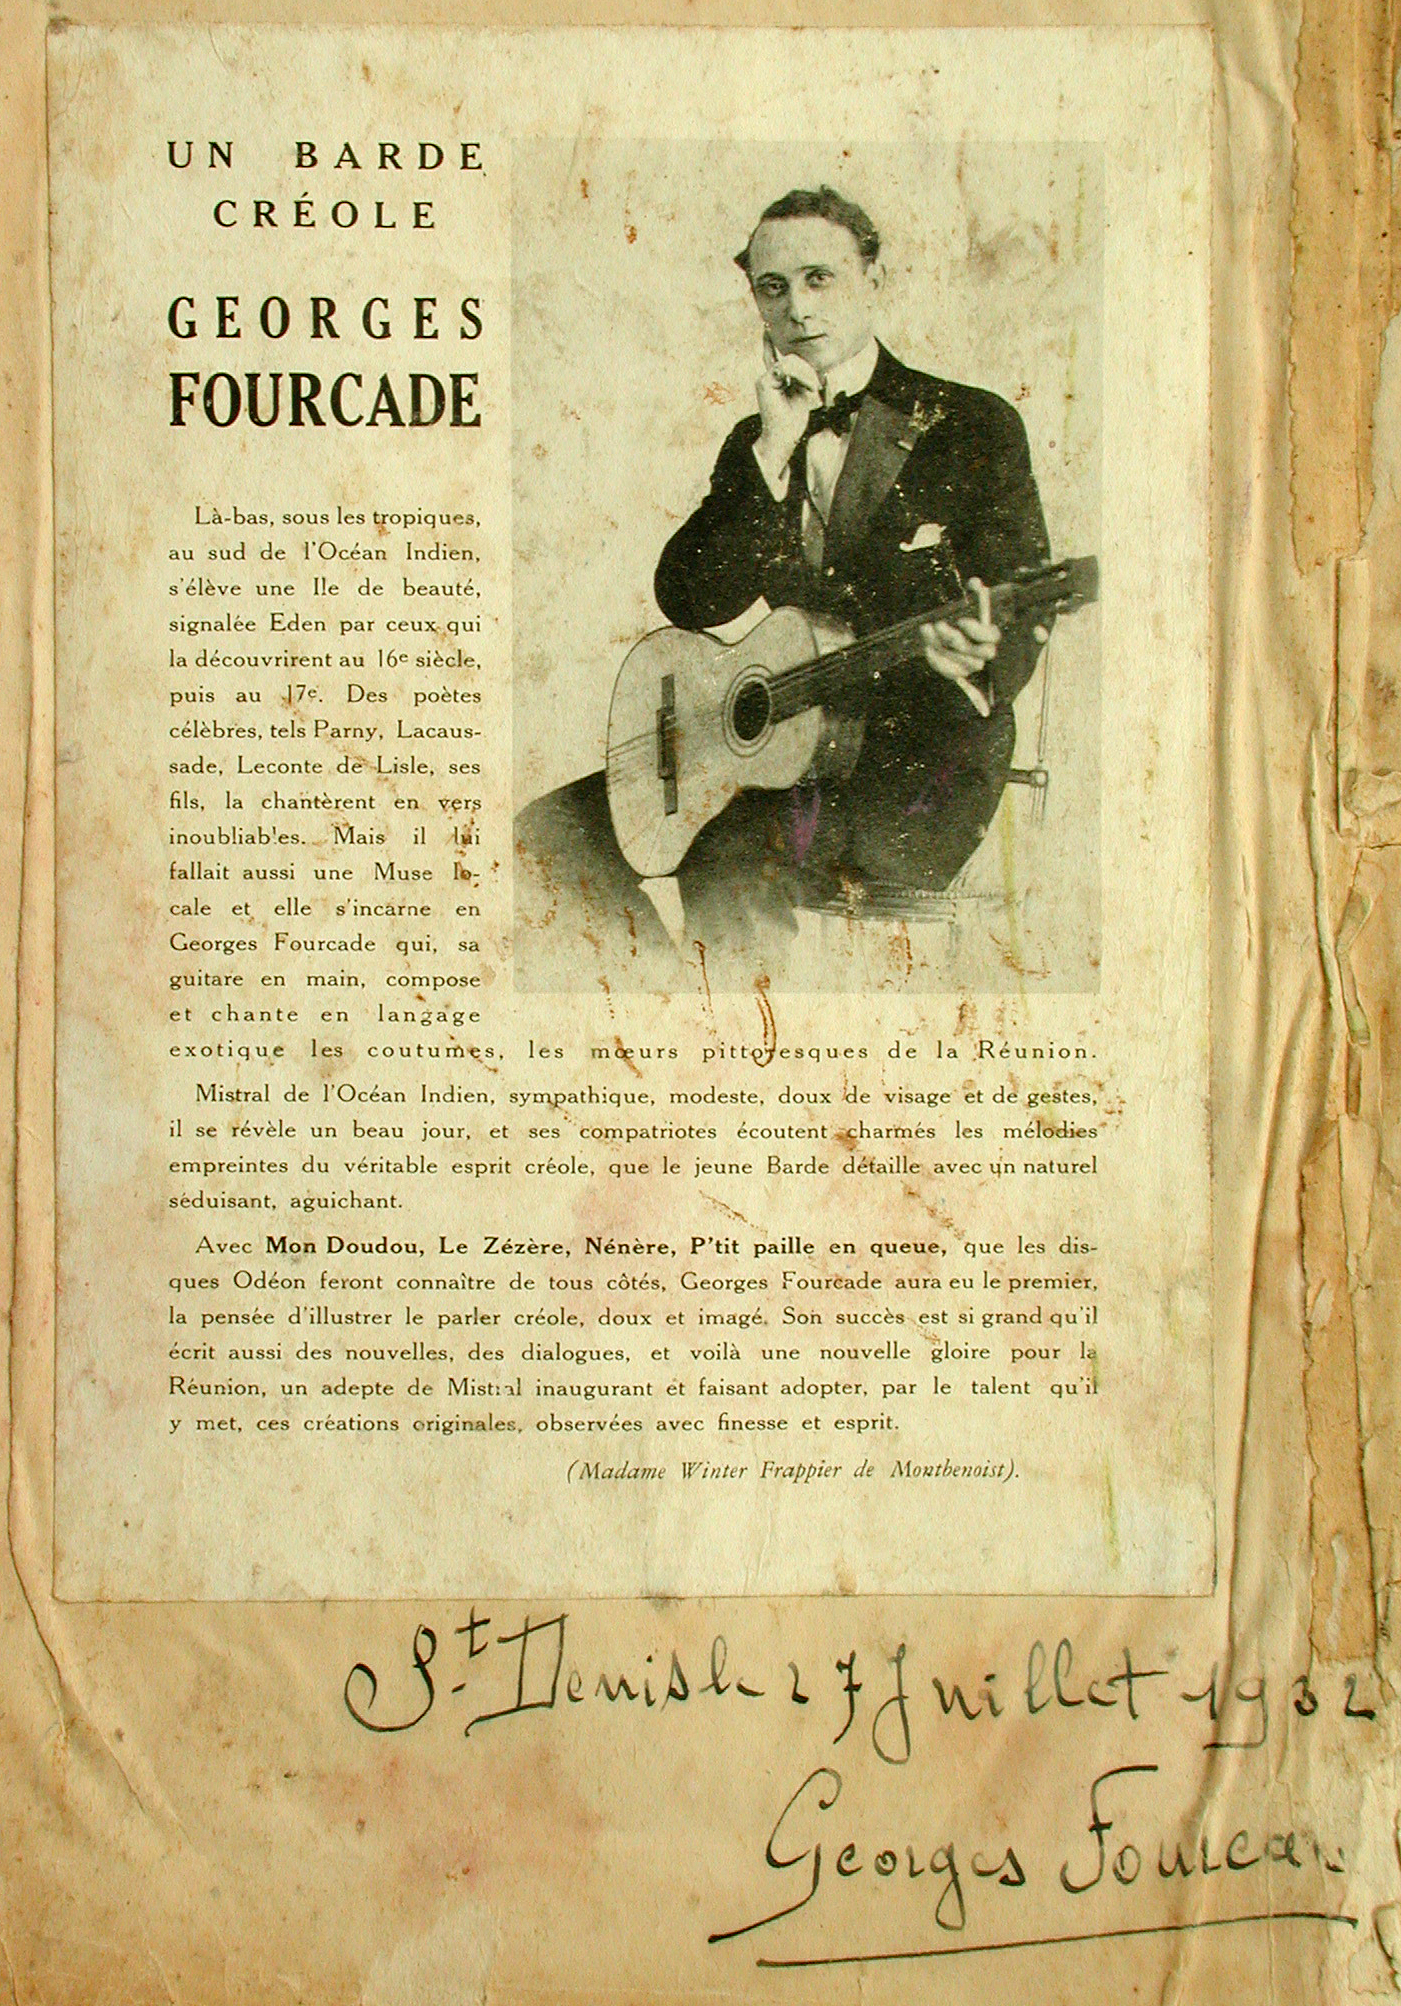 UN BARDE
CRÉOLE
GEORGES
FOURCADE
Là-bas, sous les tropiques,
au sud de l'Océan Indien,
s'élève une Ile de beauté,
signalée Eden par ceux qui
la découvrirent au 16e siècle,
puis au 17e. Des poètes
célèbres, tels Parny, Lacaus-
sade, Leconte de Lisle, ses
fils, la chantèrent en vers
inoubliables. Mais il lui
fallait aussi une Muse lo-
cale et elle s'incarne en
Georges Fourcade qui, sa
guitare en main, compose
et chante en langage
exotique les coutumes, les mœurs pittoresques de la Réunion.
Mistral de l'Océan Indien, sympathique, modeste, doux de visage et de gestes,
il se révèle un beau jour, et ses compatriotes écoutent charmés les mélodies
empreintes du véritable esprit créole, que le jeune Barde détaille avec un naturel
séduisant, aguichant.
Avec Mon Doudou, Le Zézère, Nénère, P'tit paille en queue, que les dis-
ques Odéon feront connaître de tous côtés, Georges Fourcade aura eu le premier,
la pensée d'illustrer le parler créole, doux et imagé. Son succès est si grand qu'il
écrit aussi des nouvelles, des dialogues, et voilà une nouvelle gloire pour la
Réunion, un adepte de Mistral inaugurant et faisant adopter, par le talent qu'il
y met, ces créations originales, observées avec finesse et esprit.
(Madame Winter Frappier de Montbenoist).
St. Denis le 27 Juillet 1932
Georges Fourca